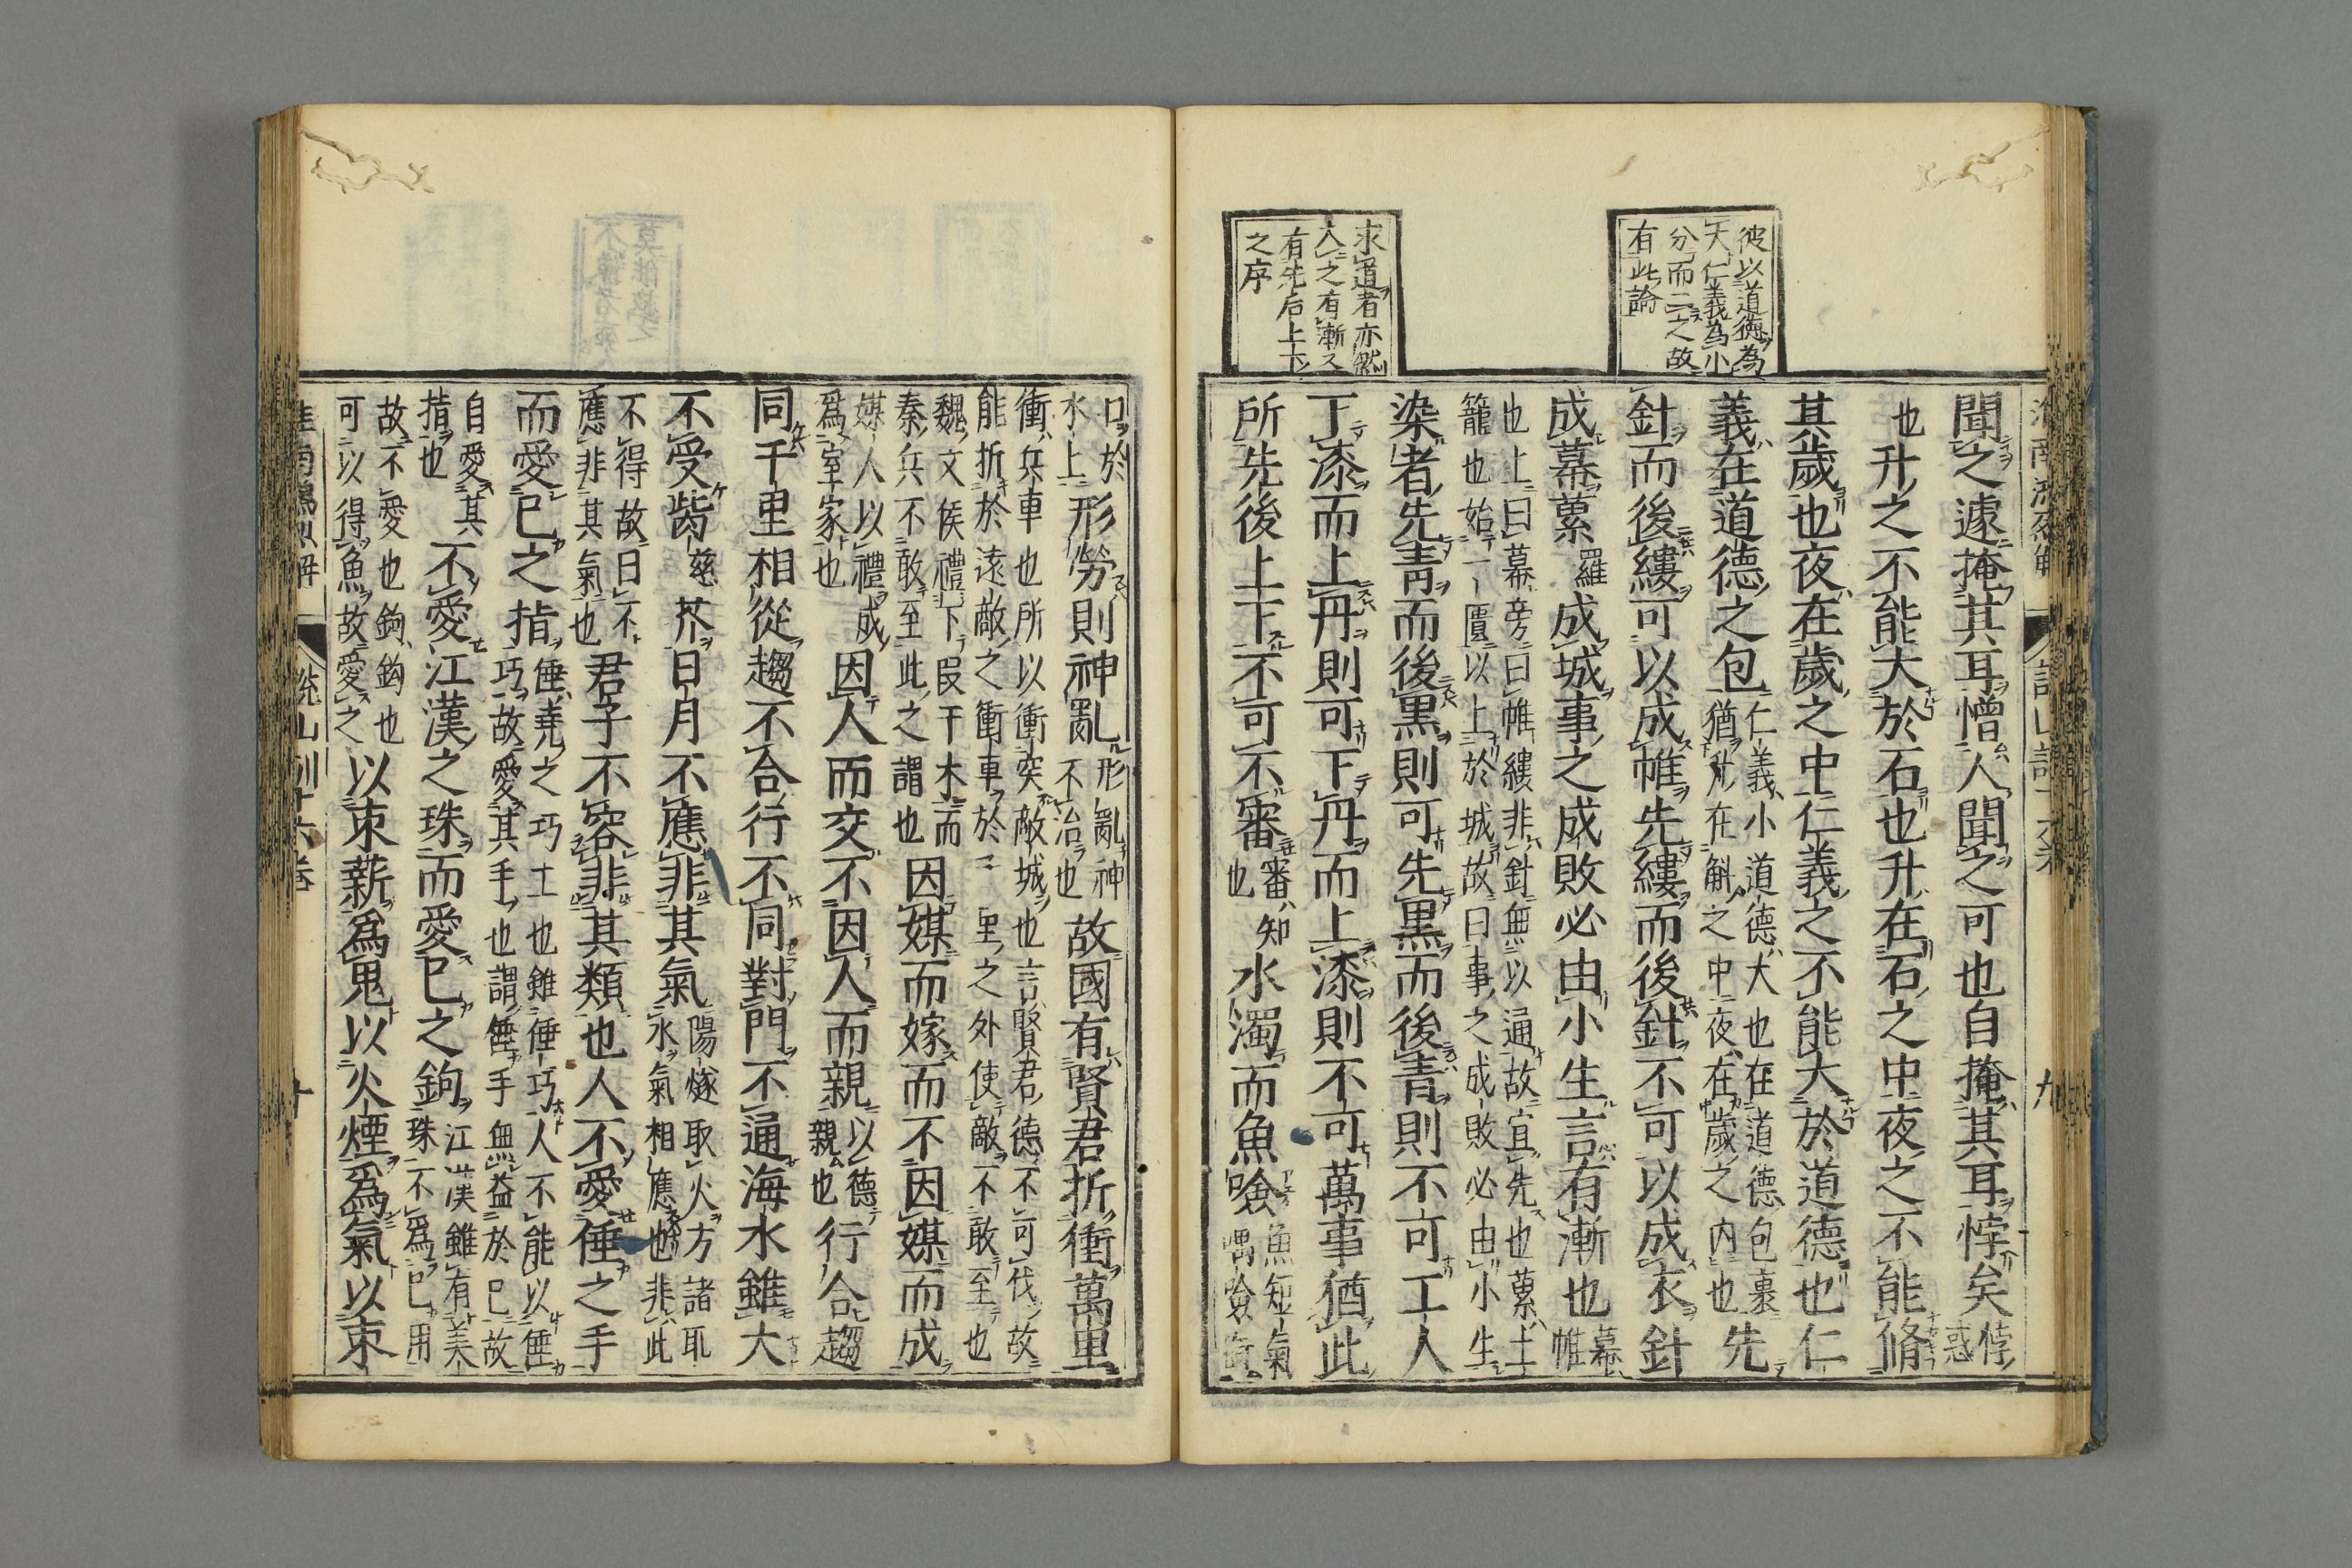 彼以道徳為
大仁義為小
分而二之故
有此論
求道者亦然
入之有漸又
有先后上下
之序
聞之遽掩其耳憎人聞之可也自掩其耳悖矣悖惑
也升之不能大於石也升在石之中夜之不能脩
其歲也夜在歲之中仁義之不能大於道德也仁
義在道德之包仁義小道德大也在道德包裹猶升在斛之中夜在歲之内也先
針而後縷可以成帷先縷而後針不可以成衣針
成幕蔂羅成城事之成敗必由小生言有漸也幕帷
也上曰幕旁曰帷縷非針無以通故宜先也蔂土
籠也始一匱以上於城故曰事之成敗必由小生
染者先青而後黒則可先黒而後青則不可工人
下漆而上丹則可下丹而上漆則不可萬事猶此
所先後上下不可不審審知也水濁而魚噞魚短氣
口於
水上形勞則神亂形亂神不治也故國有賢君折衝萬里
衝兵車也所以衝突敵城也言賢君德不可伐故
能折於遠敵之衝車於三里之外使敵不敢至也
魏文侯禮下段干木而
秦兵不敢至此之謂也因媒而嫁而不因媒而成
媒人以禮成
爲室家也因人而交不因人而親以德親也行合趨
同千里相從趨不合行不同對門不通海水雖大
不受胔慈芥日月不應非其氣陽燧取火方諸取水氣相應也非此
不得故曰不
應非其氣也君子不容非其類也人不愛倕之手
而愛已之指倕堯之巧士也雖倕巧人不能以倕巧故愛其手也謂倕手無益於已故
自愛其
指也不愛江漢之珠而愛已之鉤江漢雖有美珠不爲已用
故不愛也鉤鈎也
可以得魚故愛之以束薪爲鬼以火煙爲氣以束
説山訓十六卷
十
九